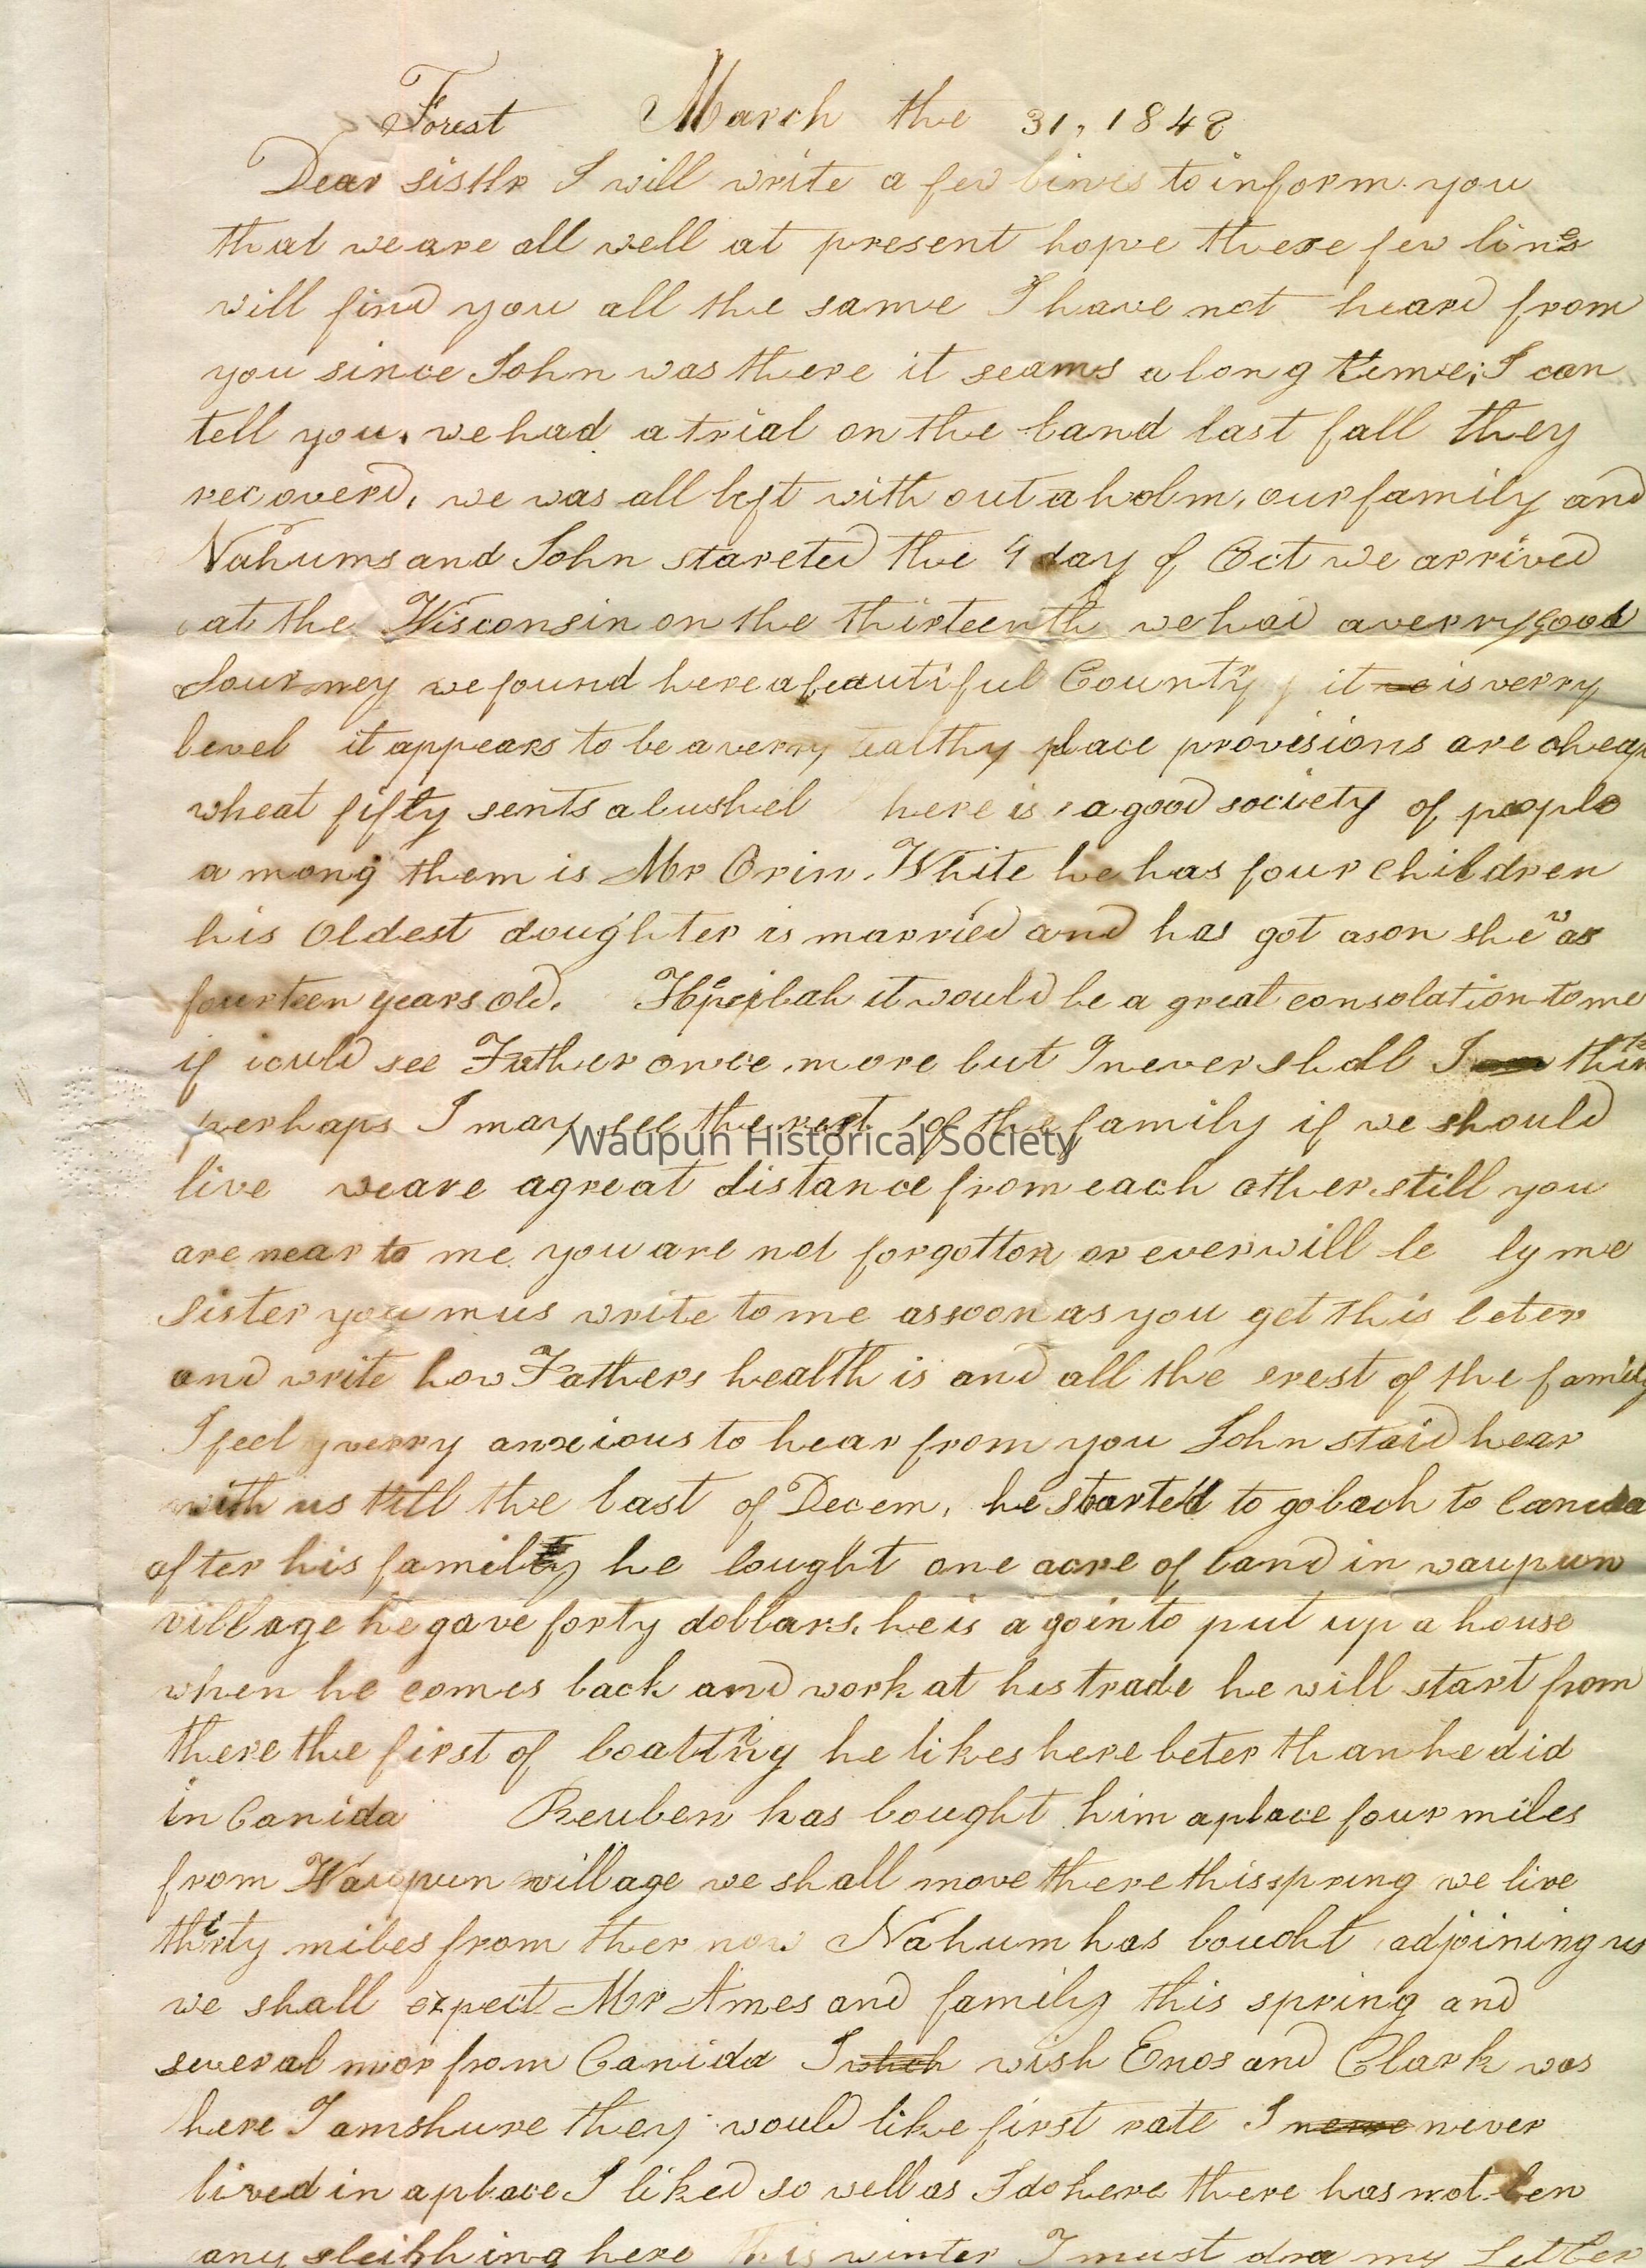 Forest March the 31, 1848
Dear sister I will write a few lines to inform you
that we are all well at present hope these few lines
will find you all the same I have not heard from
you since John was there it seams a long time; I can
tell you. we had a trial on the land last fall they
recoverd, we was all left with out a holm, our family and
Nahums and John stareted the 4 day of Oct we arrived
at the Wisconsin on the thirteenth we had a verry good
Journey we found here a beautiful Country it is verry
level it appears to be a verry healthy place provisions are cheap
wheat fifty sents a bushel here is a good society of people
a mong them is Mr Orin. White he has four children
his oldest doughter is married and has got a son she was
fourteen years old. it would be a great consolation to me
if i could see Father once more but I never shall I think
perhaps I may see the rest of the family if we should
live we are a great distance from each other still you
are near to me you are not forgotton or ever will be by me
Sister you mus write to me as soon as you get this leter
and write how Fathers health is and all the erest of the family
I feel verry anxious to hear from you John staid hear
with us till the last of Decem, he started to go back to Canida
after his family he bought one acre of land in waupun
village he gave forty dollars. he is a goin to put up a house
when he comes back and work at his trade he will start from
there the first of boatting he likes here beter than he did
in Canida Reuben has bought him a place four miles
from Waupun village we shall move there this spring we live
thirty miles from ther now Nahum has bought adjoining us
we shall expect Mr Ames and family this spring and
several mor from Canida I which wish Enos and Clark was
here I am shure they would like first rate I neve never
lived in a place I liked so well as I do here there has not ben
any sleighing here this winter I must dra my Letter
Waupun Historical Society